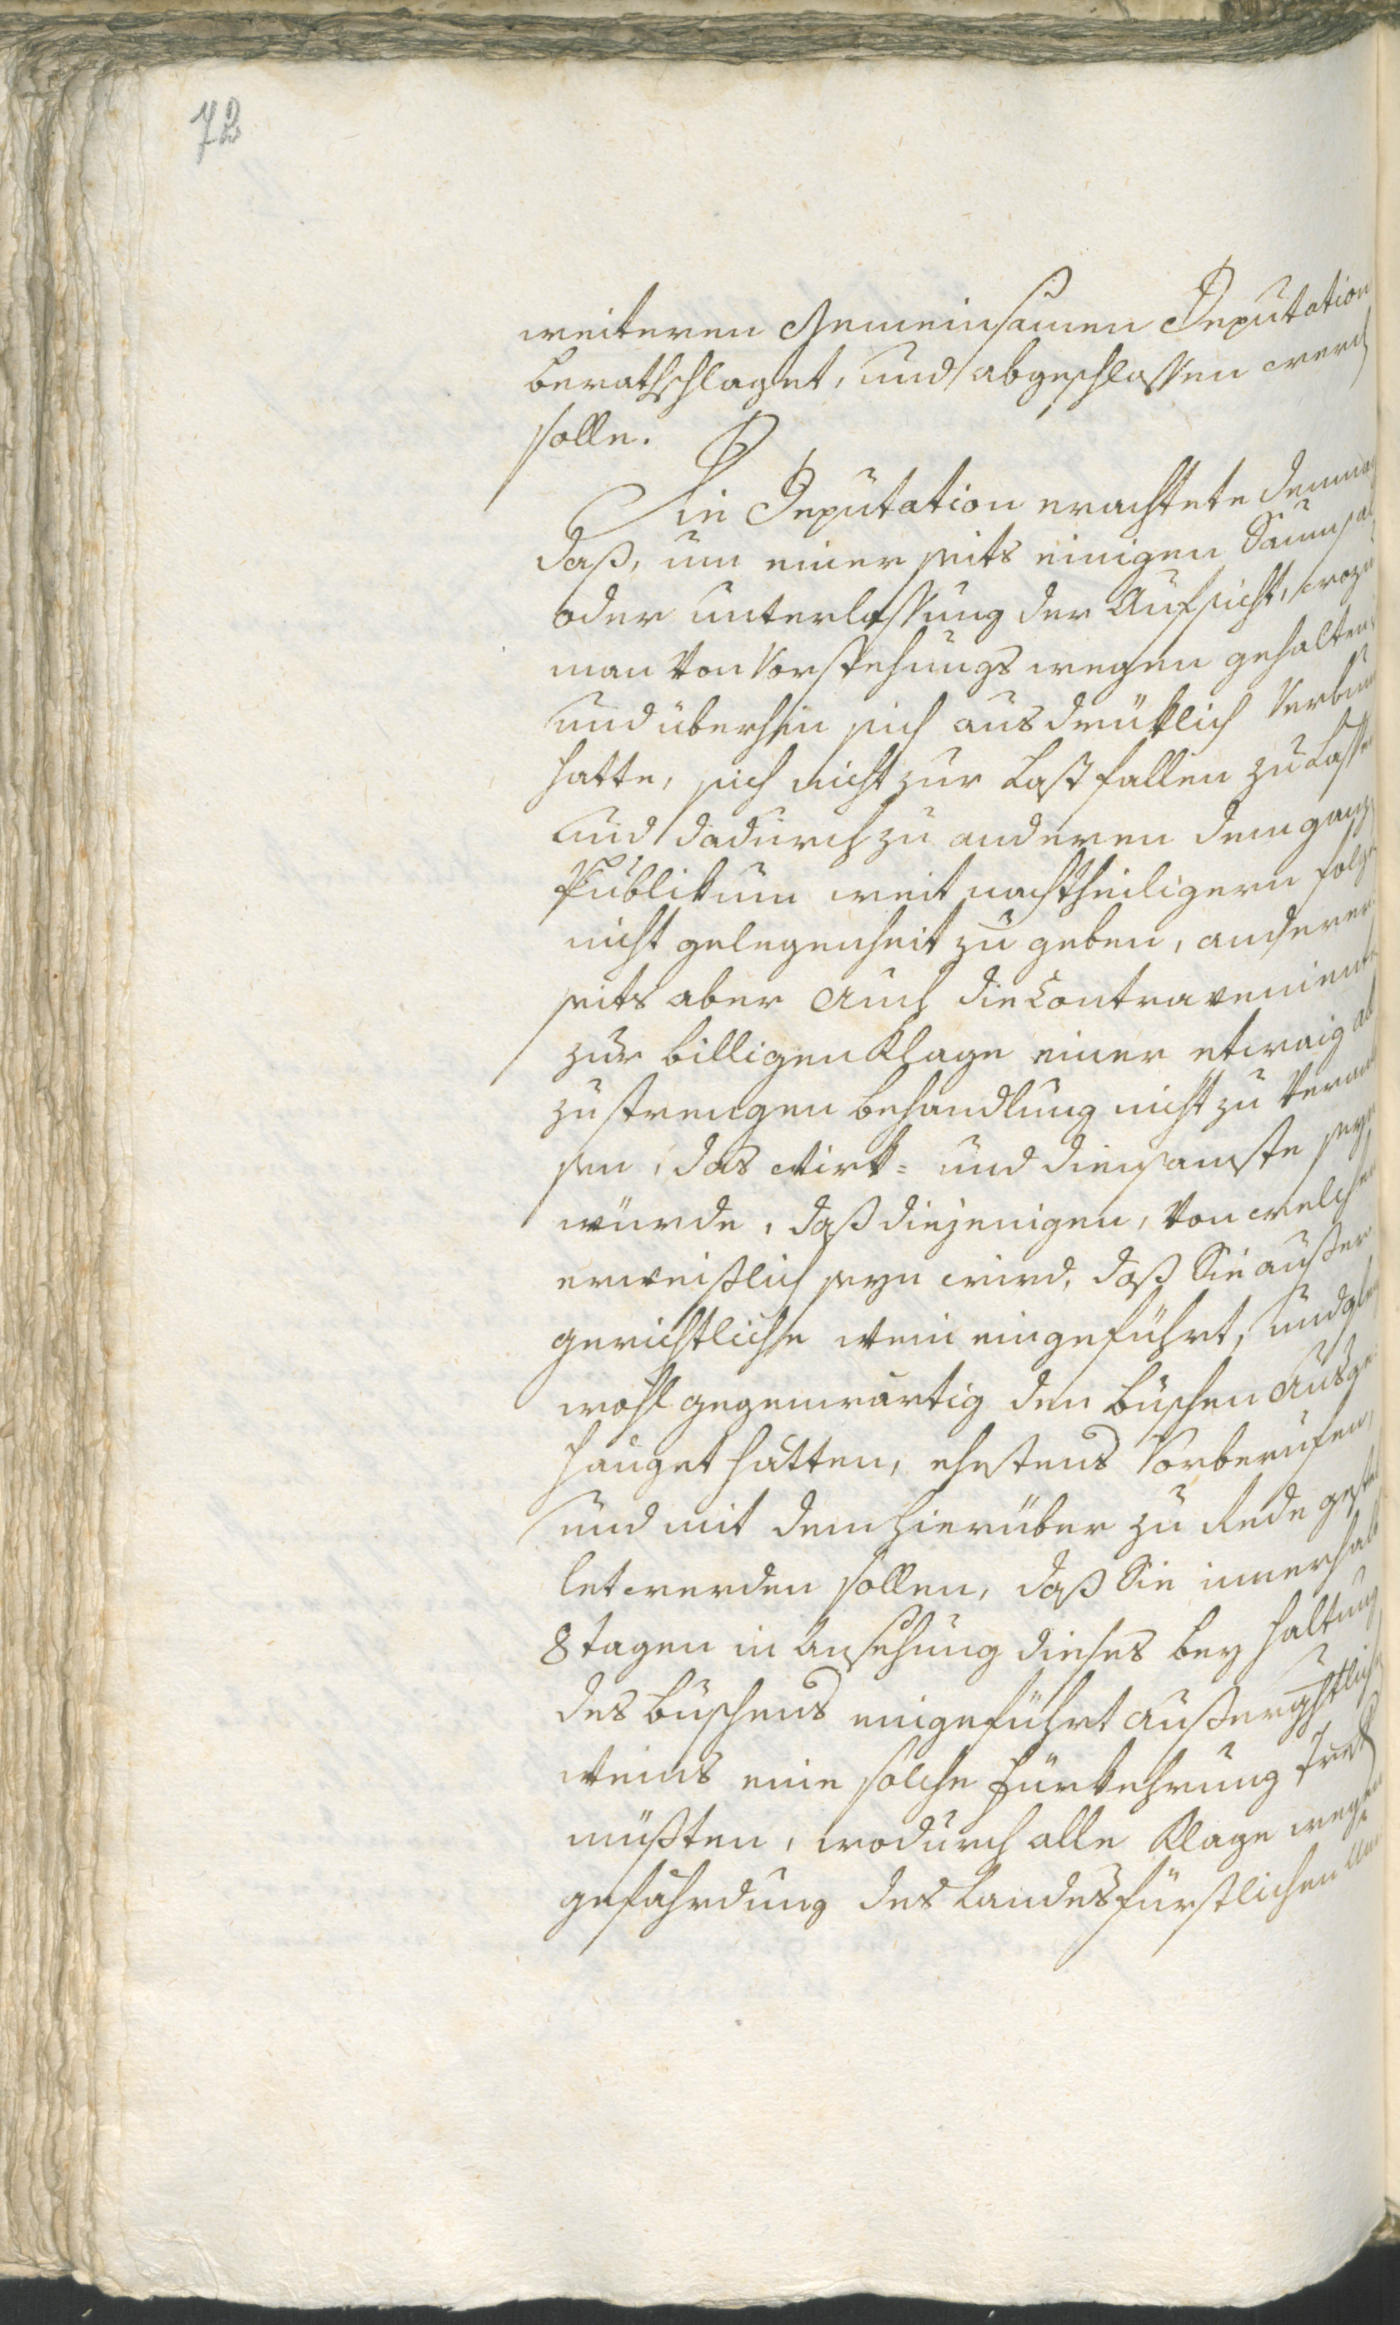 72
weiteren Gemeinsamen Deputation
berathschlaget, und abgeschlossen werd
solle.
Die Deputation erachtete demna
daß, um einer seits einigen Saumsal
oder unterlassung der Aufsicht, wozu
man Von Vorstehungs wegen gehalten
und überhin sich ausdrüklich Verbun
hatte, sich nicht zur Last fallen zu Lasse
und dadurch zu anderen dem ganz
Publikum weit nachtheiligern folge
nicht gelegenheit zu geben, anderer
seits aber Auch die Contravenient
zur billigen Klage einer etwaig al
zu strengen behandlung nicht zu Veran
sen, das Wirk- und diensamste seyn
würde, daß diejenigen, Von welchen
erweislich seyn wird, daß Sie außer
gerichtliche Wein eingeführt, und glei
wohl gegenwärtig den büschen Ausge
hänget hätten, ehestens Vorberufen,
und mit dem hierüber zu Rede gestel
let werden sollen, daß Sie innerhalb
8 tagen in Ansehung dieses bey haltung
des büschens eingeführt Außergchtlich
Weins eine solche fürkehrung Treff
müßten, wodurch alle Klage wegen
gefährdung des Landesfürstlichen Um